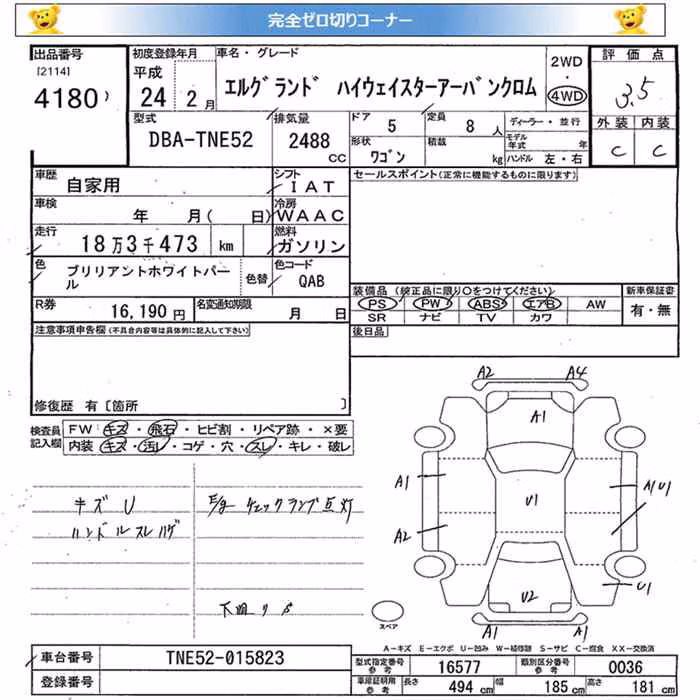 完全ゼロ切りコーナー
出品番号
[2114]
4180
初度登録年月
平成
24年 2月
車名・グレード
エルグランド ハイウェイスターアーバンクロム
2WD
・
4WD
評価点
3.5
外装 内装
C C
型式
DBA-TNE52
排気量
2488
CC
ドア 5
定員 8 人
形状 ワゴン
積載 kg
ディーラー・並行
モデル年式 年
ハンドル 左・右
車歴 自家用
シフト
IAT
車検 年 月( 日)
冷房
WAAC
走行 18万3千473 km
燃料
ガソリン
色 ブリリアントホワイトパール
色替
色コード
QAB
R券 16,190円
名変通知期限 月 日
セールスポイント(正常に機能するものに限ります)
装備品(純正品に限り○をつけてください)
PS PW ABS エアB AW
SR ナビ TV カワ
新車保証書
有・無
後日品
注意事項申告欄(不具合内容等は具体的に記入して下さい)
修復歴 有[箇所 ]
検査員記入欄
FW: キズ・飛石・ヒビ割・リペア跡・×要
内装: キズ・汚レ・コゲ・穴・スレ・キレ・破レ
キズ U
ハンドルスレハゲ
E/g チェックランプ点灯
下廻りS
A2 A4
A1
A1
A1U1
U1
A2
U1
U2
A1 A1
スペア
A-キズ E-エクボ U-凹み W-補修跡 S-サビ C-腐食 XX-交換済
車台番号 TNE52-015823
登録番号
型式指定番号 参考 16577
類別区分番号 参考 0036
車庫証明用 参考 長さ 494 cm 幅 185 cm 高さ 181 cm